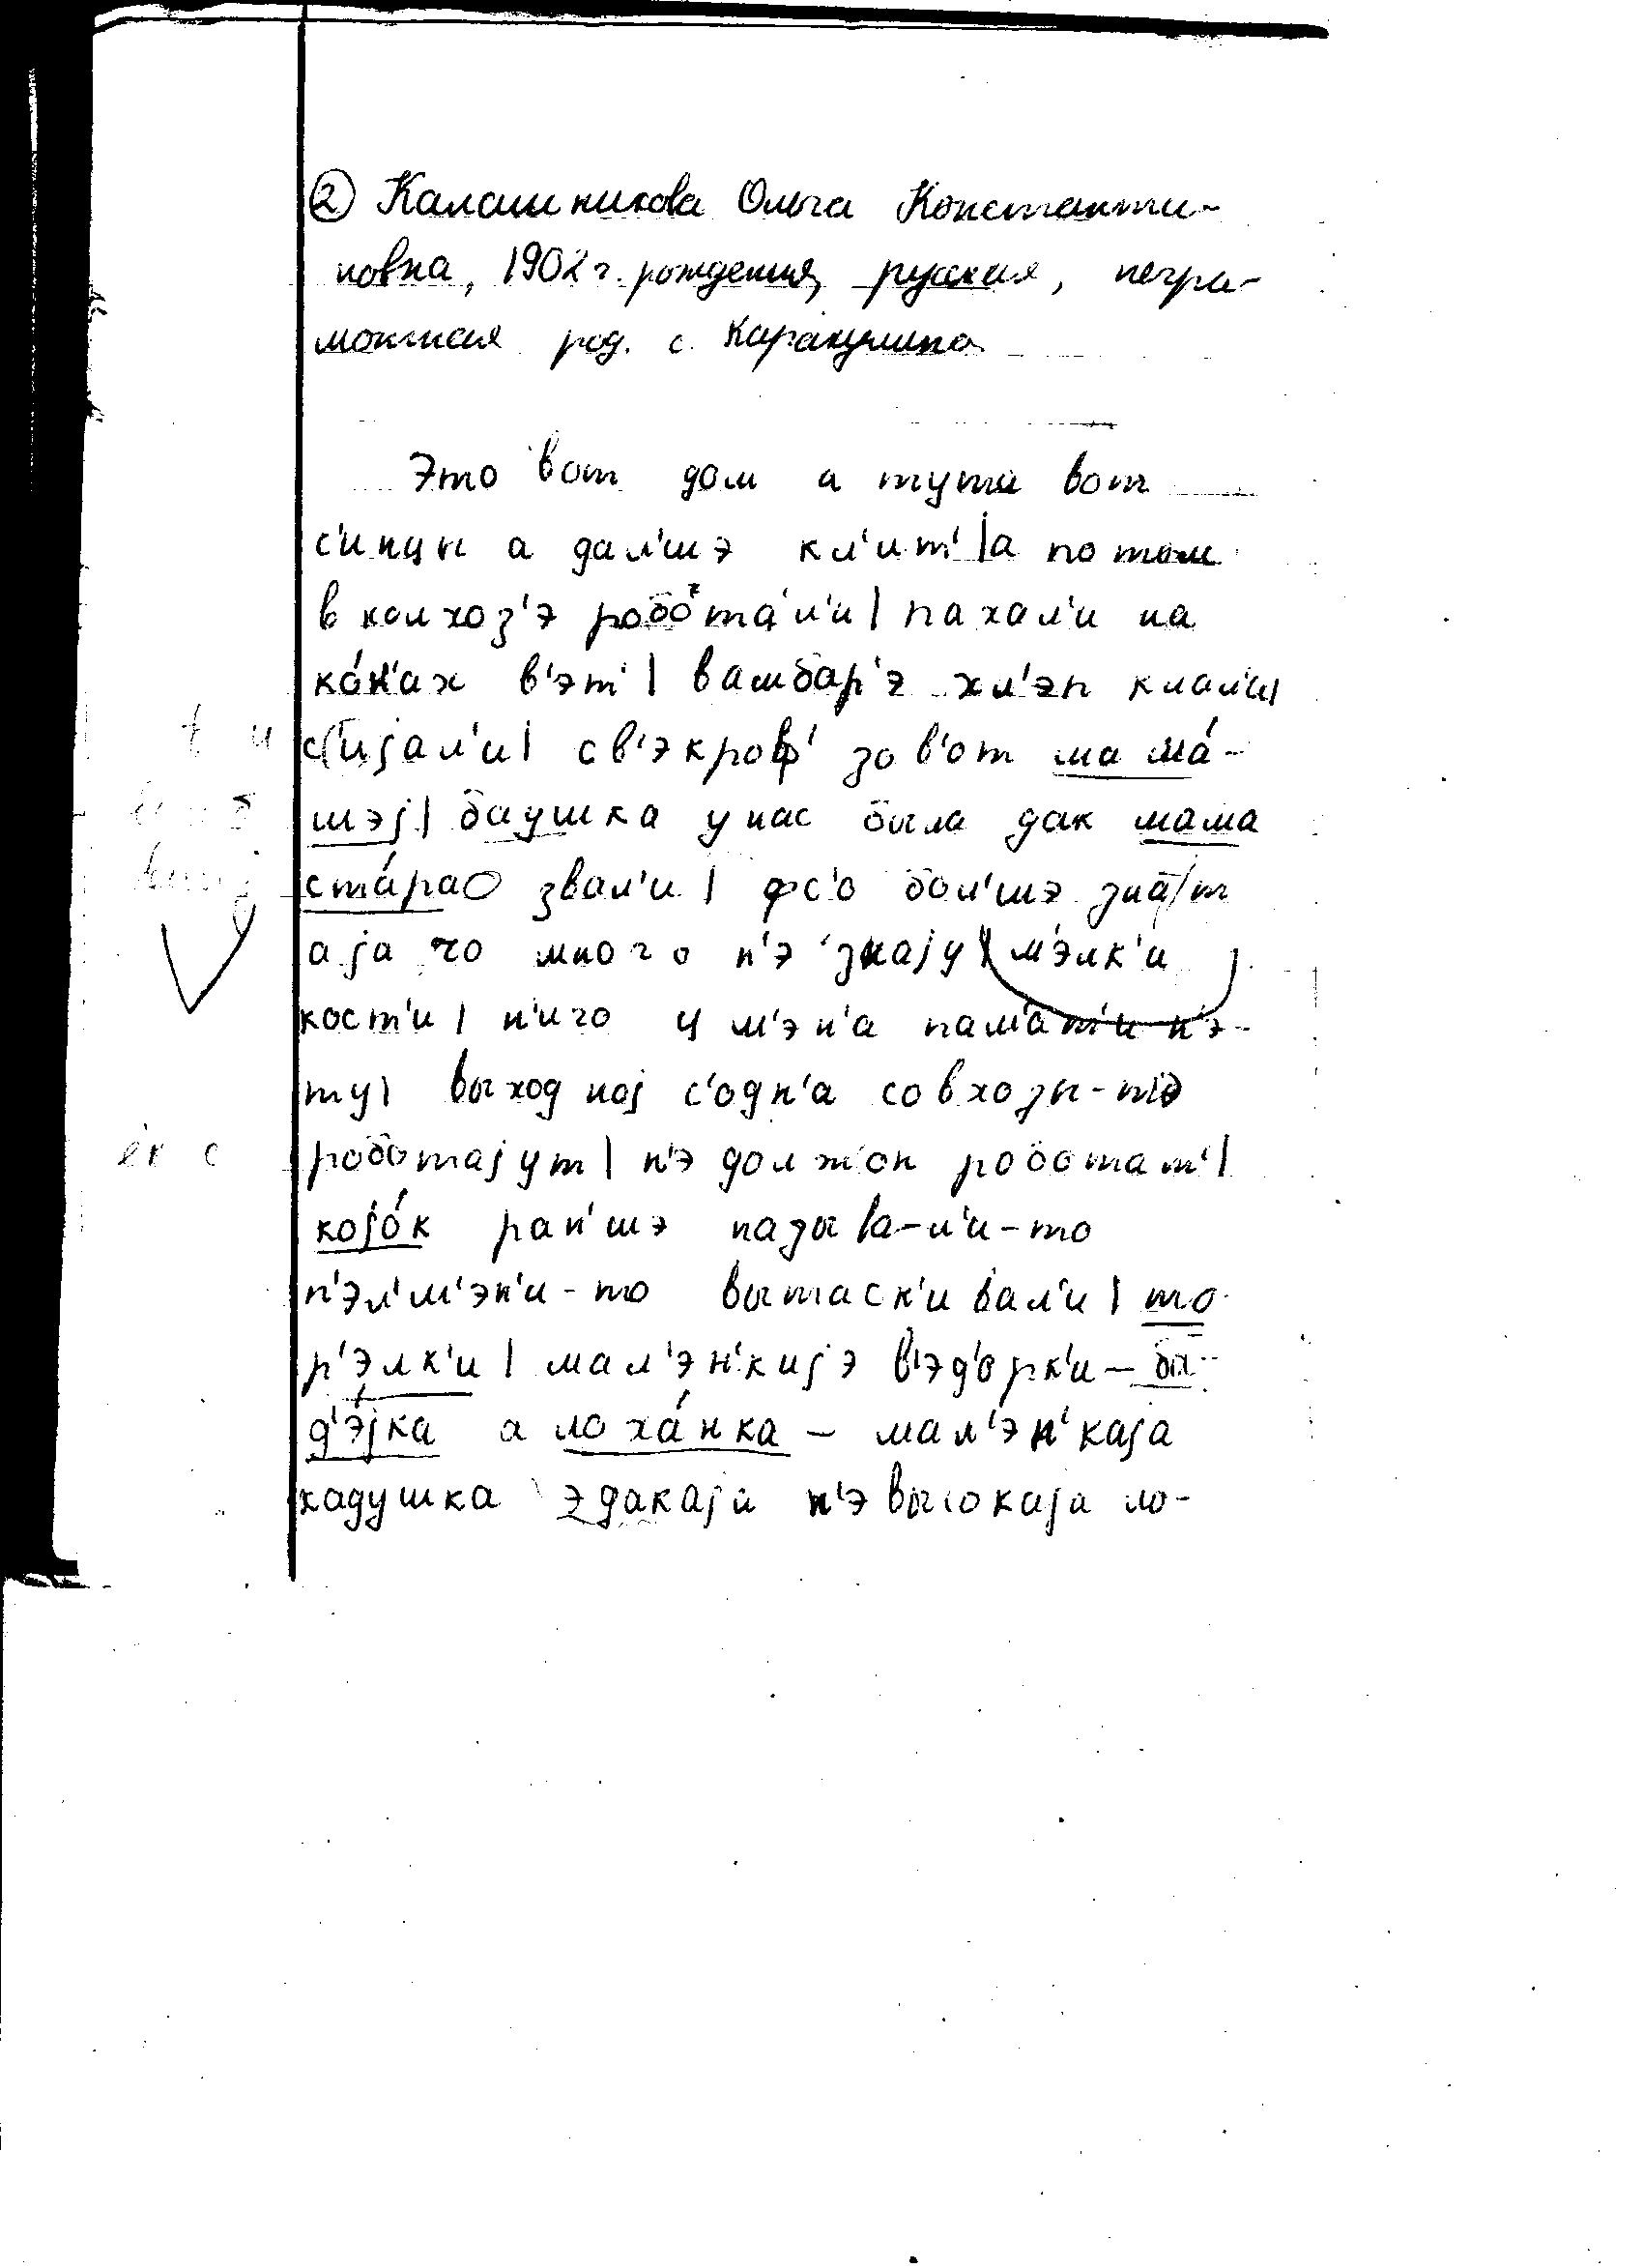 ② Калашникова Ольга Константи-
новна, 1902 г. рождения, русская, негра-
мотная род. с. Каракулино
Это вот дом а тута вот
с'инцы а дал'шэ кл'ит' | а потом
в колхоз'э робота́л'и | пахал'и на
ко́н'ах в'эт' | вамбар'э хл'эп клал'и |
с св'экроф' зов'от мама́-
шэj | баушка у нас была дак мама
ста́раjо звал'и | фс'о бол'шэ зна̄т
а jа чо много н'э знаjу | м'элк'и
кост'и | н'ичо у м'эн'а памат'и н'э-
ту | выходноj с'одн'а совхозы-то
роботаjут | н'э должон роботат' |
коjо́к ран'шэ называ-л'и-то
п'эл'м'эн'и-то вытаск'ивал'и | то
р'элк'и | мал'эн'киjэ в'эд'орк'и – ба
д'э́jка а лоха́нка – мал'эн'каjа
кадушка эдакаjа н'эвысокаjа ло-